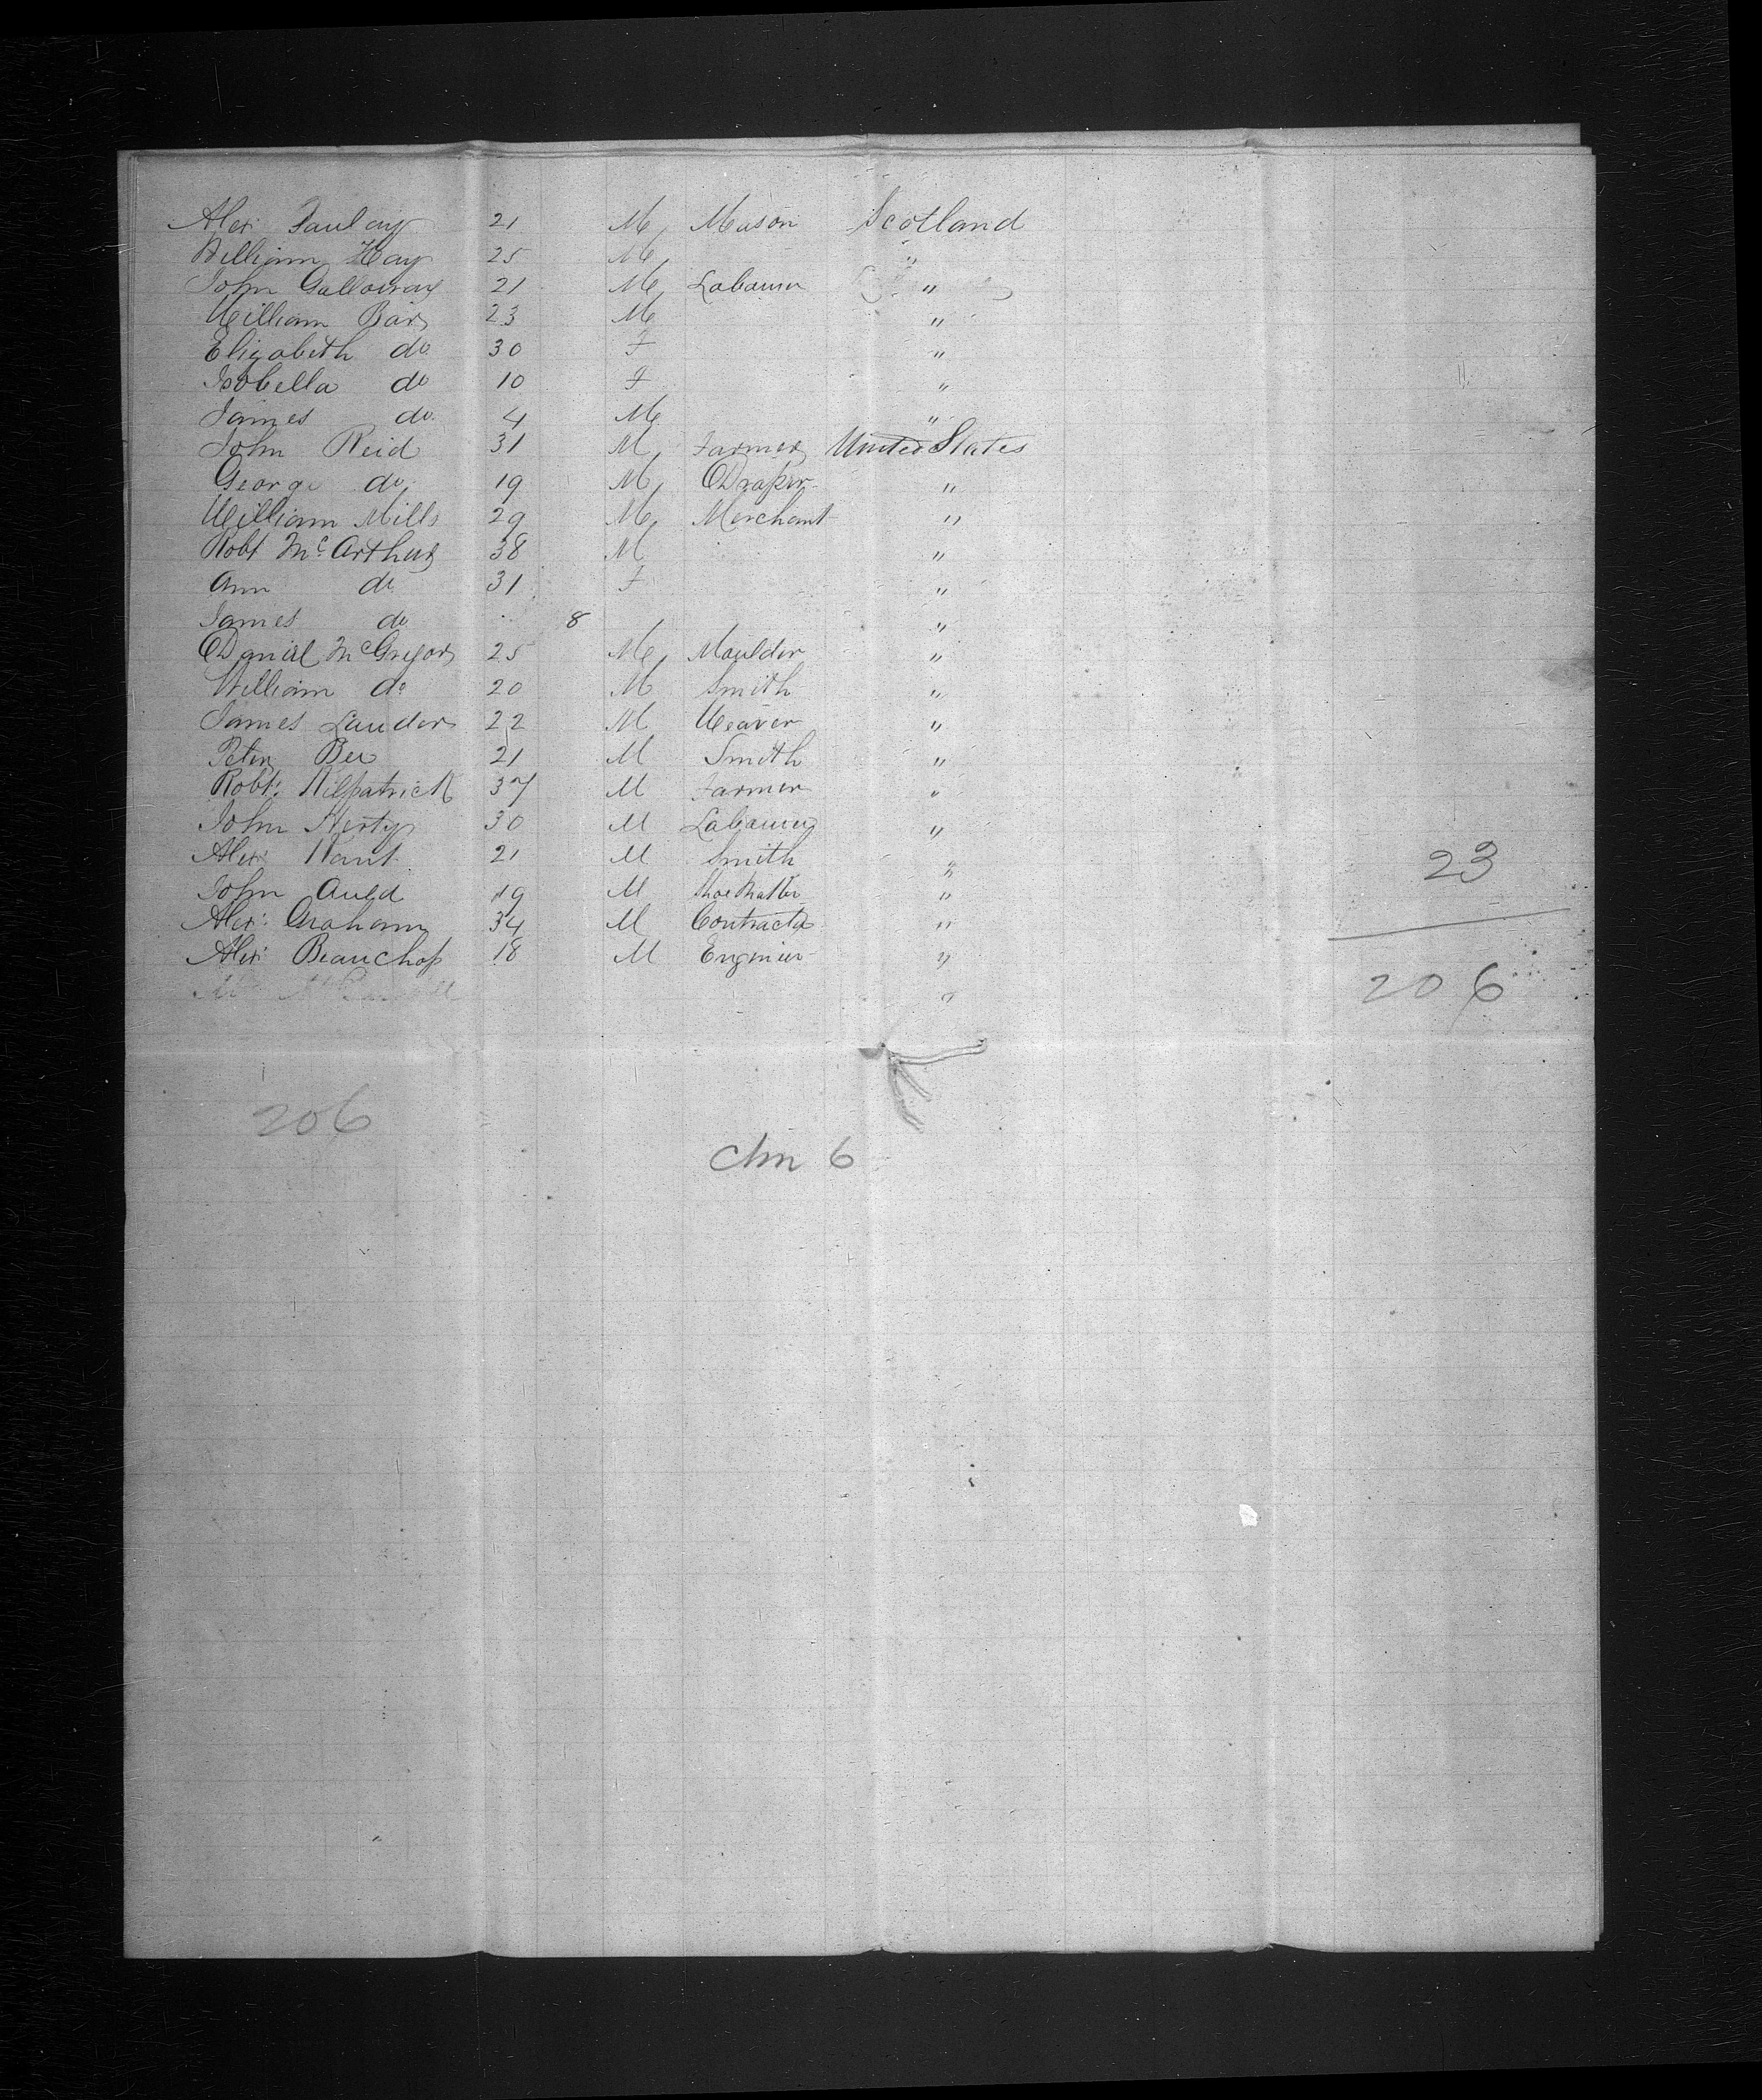 Alexr Taulay 21 M Mason Scotland
William Hay 25 M "
John Galloway 21 M Labourer "
William Bair 23 M "
Elizabeth do 30 F "
Isobella do 10 F "
James do. 4 M "
John Reid 31 M Farmer United States
George do. 19 M Draper "
William Mills 29 M Merchant "
Robt McArthur 38 M "
Ann do 31 F "
James do 8 "
Daniel McGregor 25 M Moulder "
William do 20 M Smith "
James Lauder 22 M Weaver "
Peter Bee 21 M Smith "
Robt: Kilpatrick 37 M Farmer "
John Herty 30 M Labourer "
Alexr 21 M Smith "
John Auld 19 M "
23
Alexr: Graham 34 M Contractor "
Alexr: Beauchop 18 M Engineer "
"
206
206
Chn 6